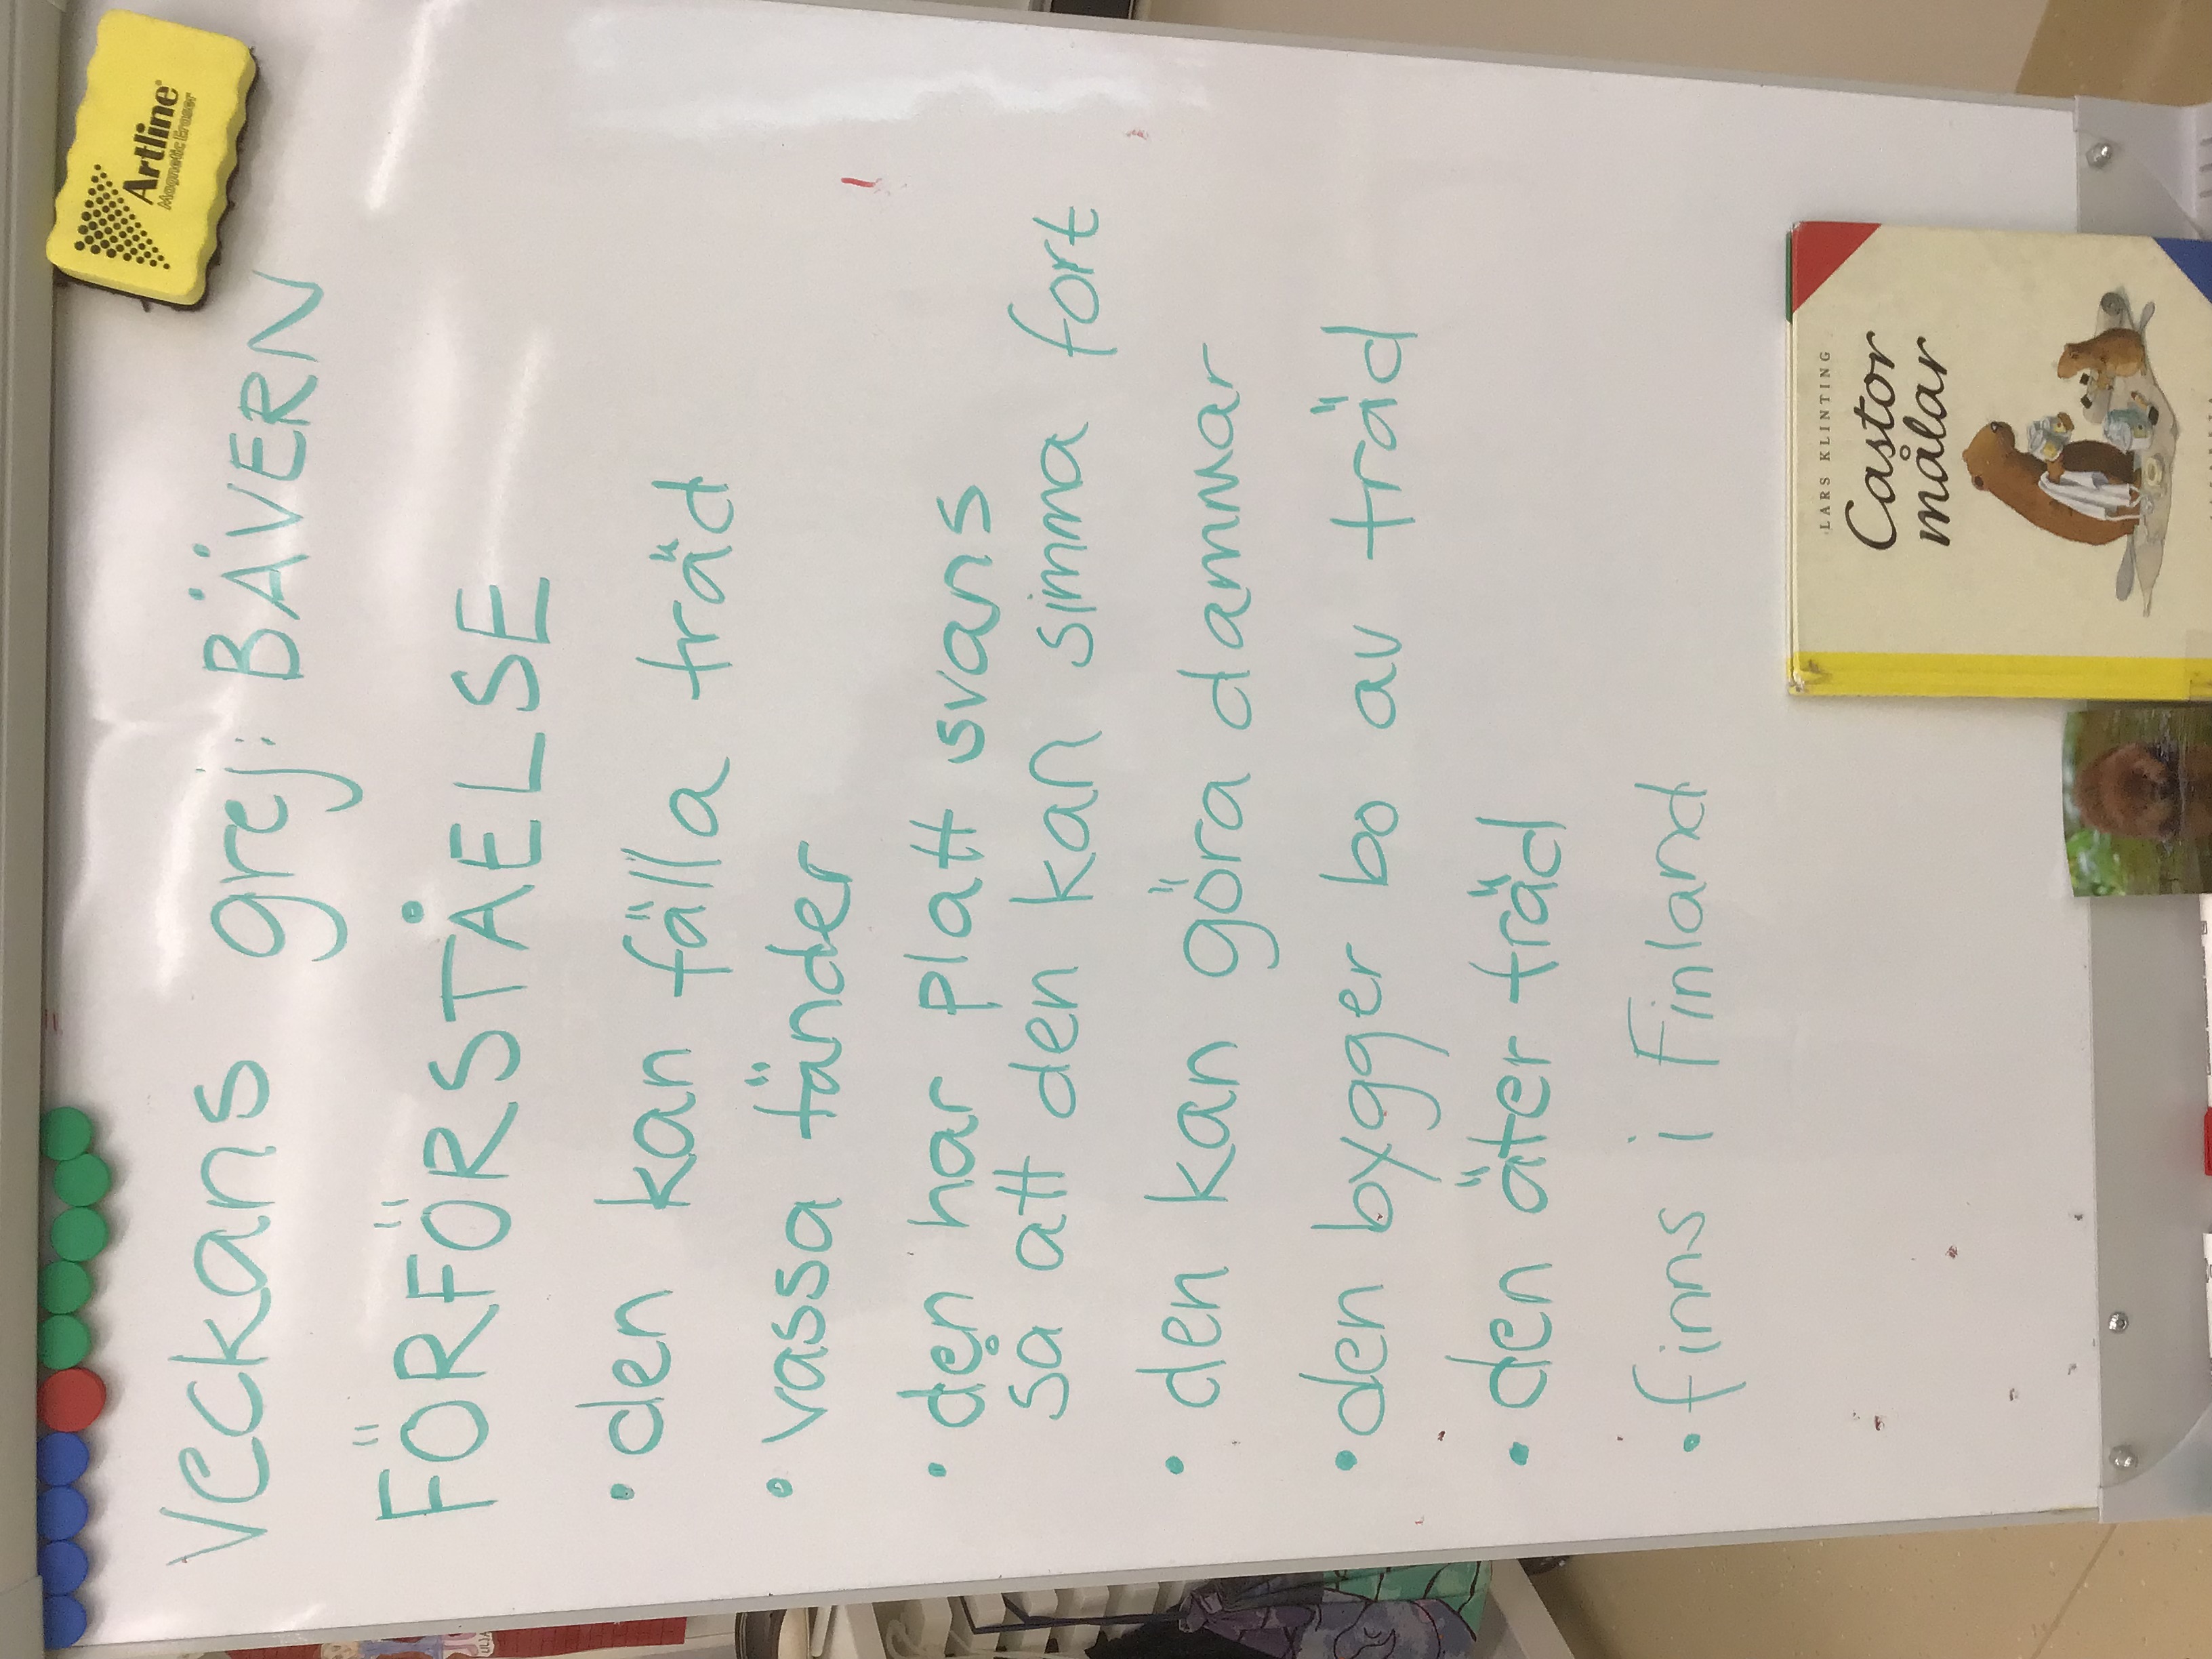 Artline
Magnetic Eraser
Veckans grej: BÄVERN
FÖRFÖRSTÅELSE
• den kan fälla träd
• vassa tänder
• den har platt svans
så att den kan simma fort
• den kan göra dammar
• den bygger bo av träd
• den äter träd
• finns i Finland
LARS KLINTING
Castor
målar